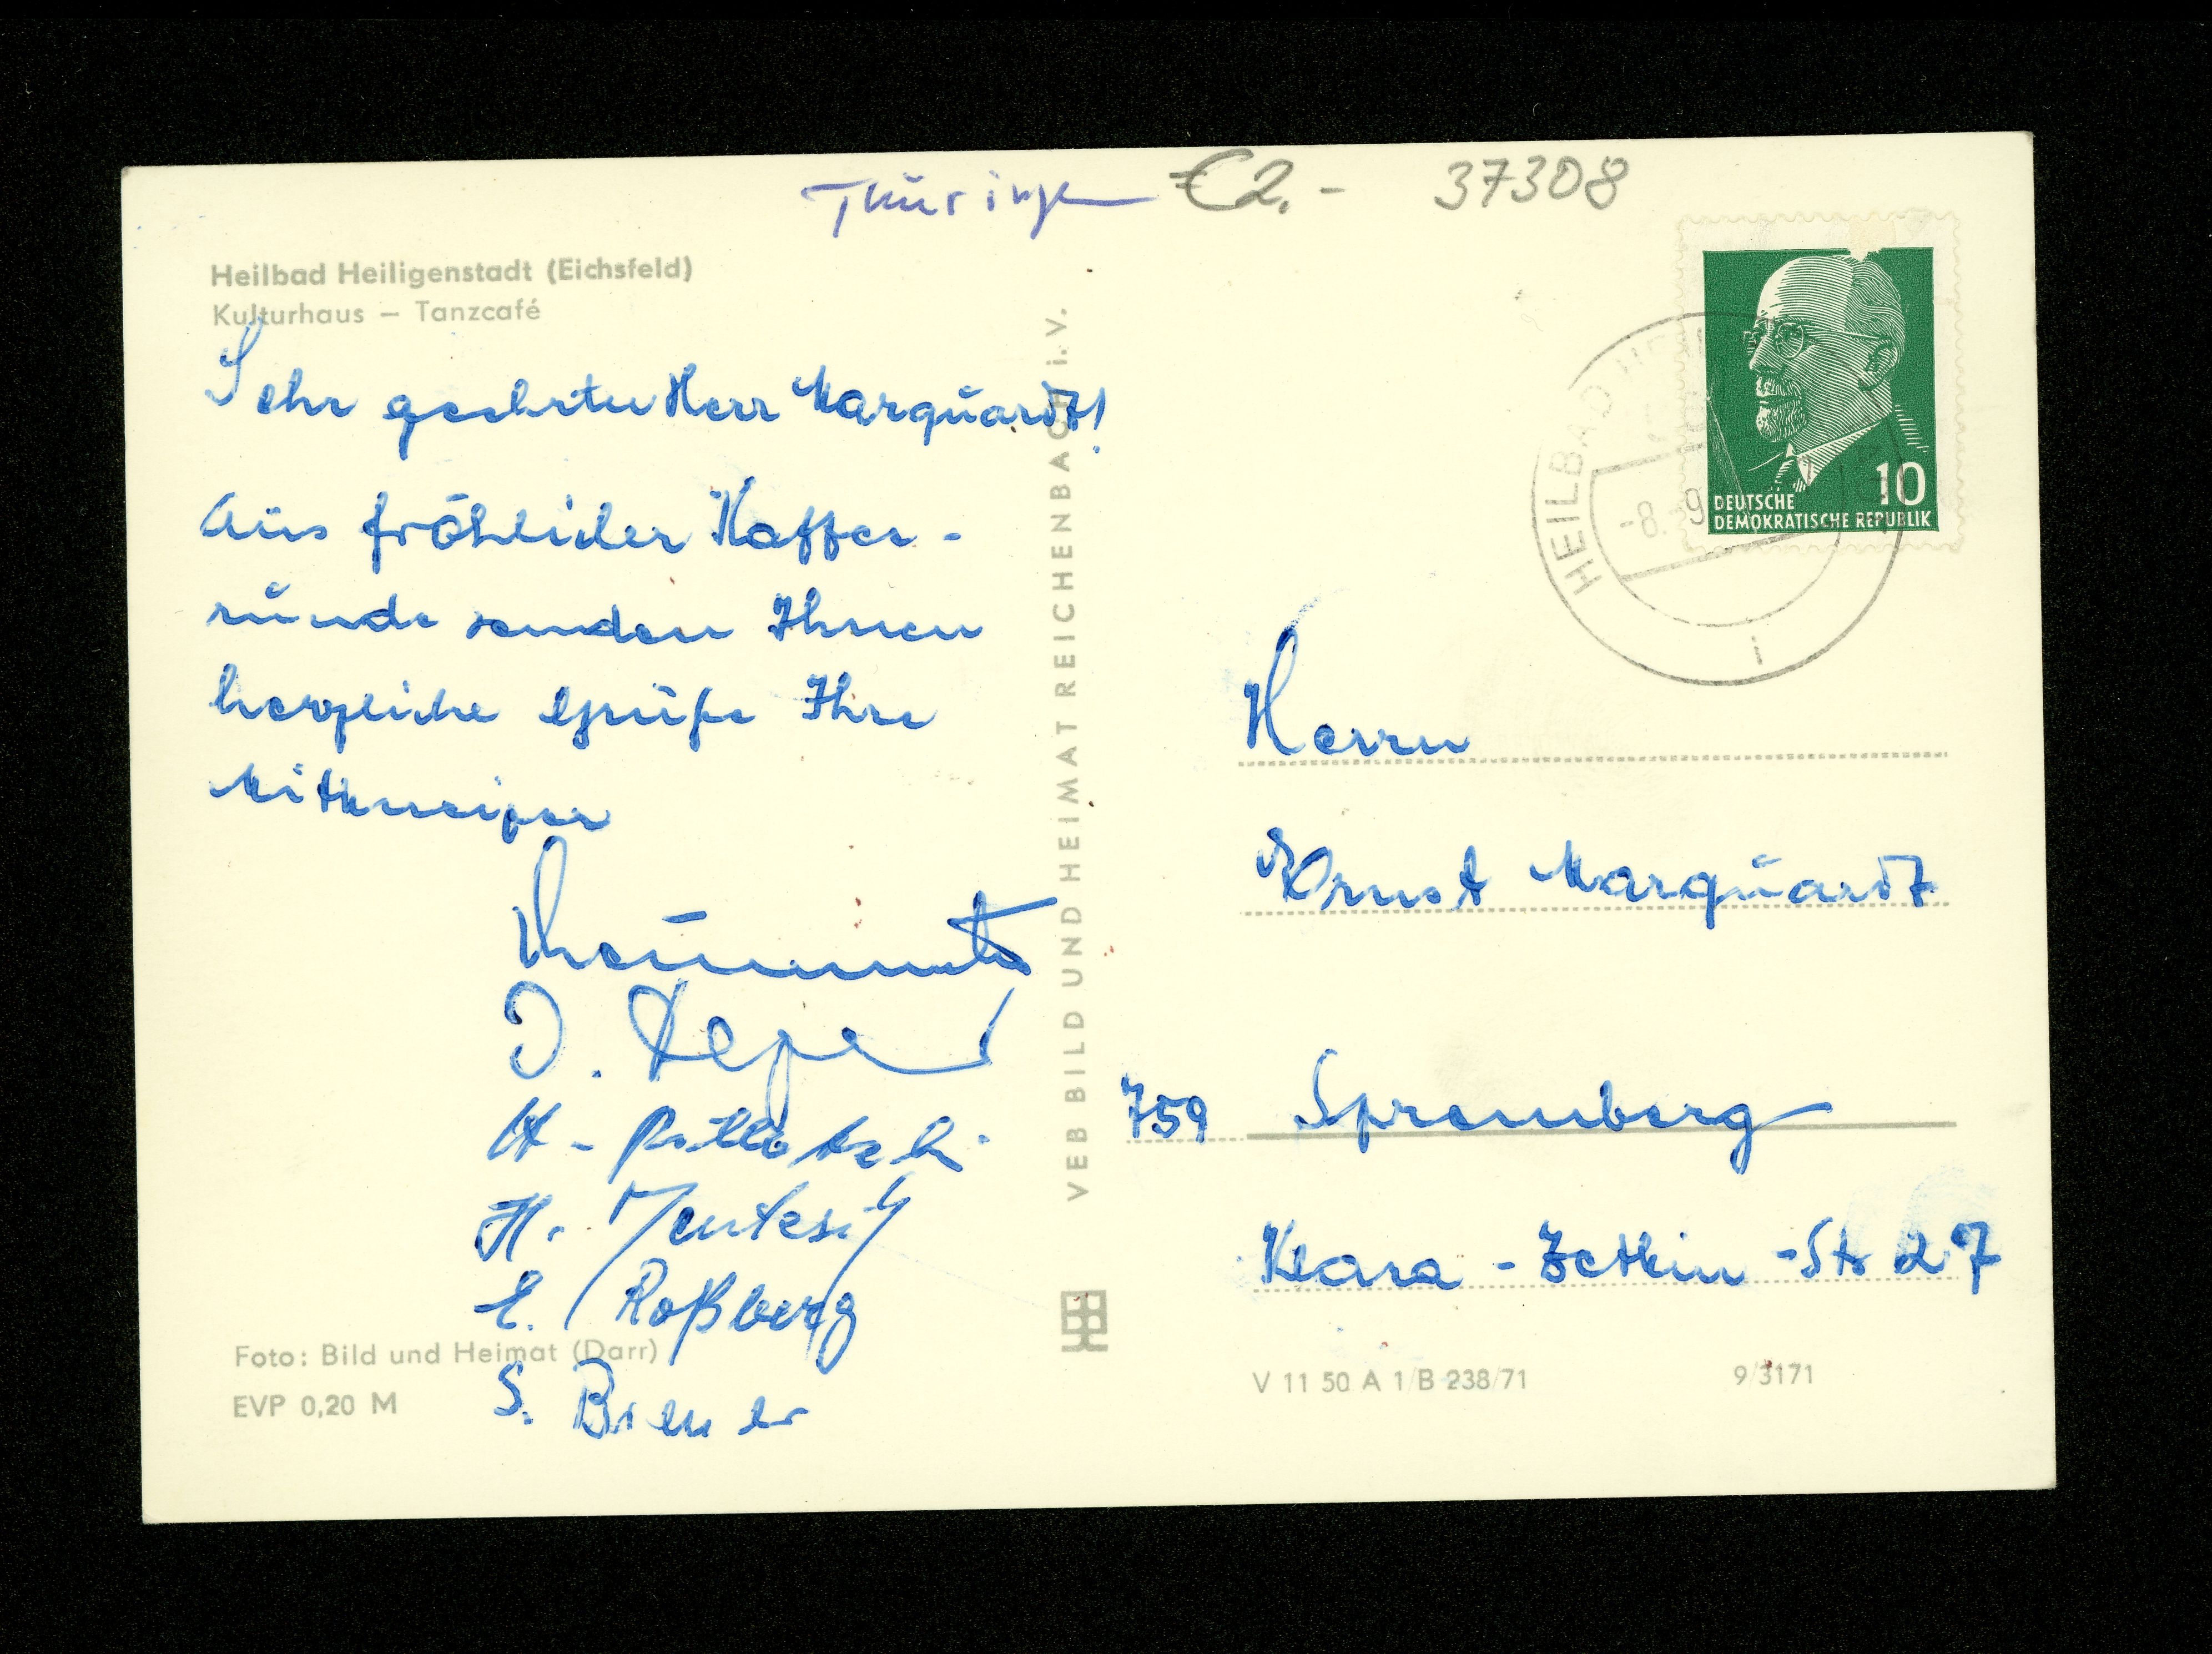 Thüringen €2.- 37308
Heilbad Heiligenstadt (Eichsfeld)
Kulturhaus – Tanzcafé
Sehr geehrter Herr Marquardt!
Aus fröhlicher Kaffee-
runde senden Ihnen
herzliche Grüße Ihre
Mitkneiper
H.
E. Roßberg
S.
Foto: Bild und Heimat (Darr)
EVP 0,20 M
VEB BILD UND HEIMAT REICHENBACH i. V.
10
DEUTSCHE
DEMOKRATISCHE REPUBLIK
HEILBAD
-8. 9
i
Herrn
Ernst Marquardt
759 Spremberg
Klara-Zetkin-Str 27
V 11 50 A 1/B 238/71 9/3171